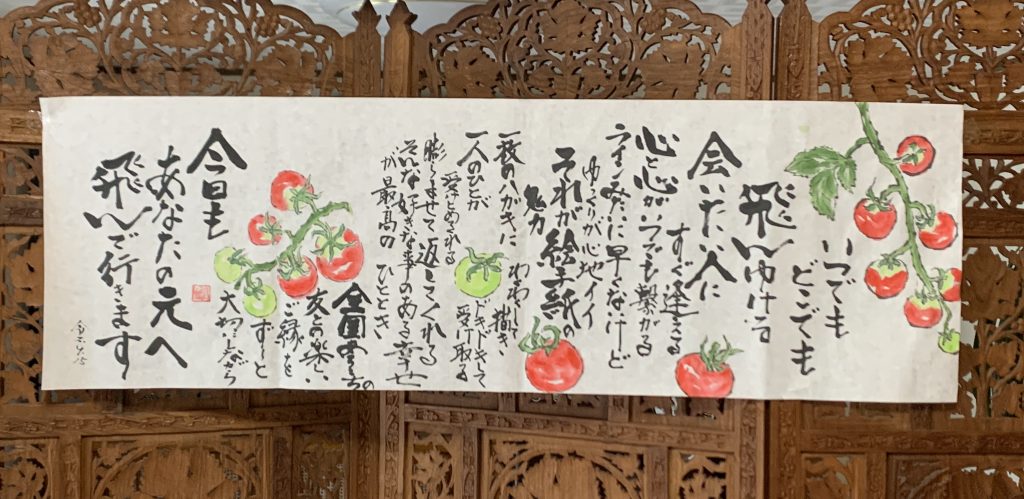 いつでも
どこでも
飛んでゆける
会いたい人に
すぐ逢える
心と心がいつでも繋がる
ラインみたいに早くないけど
ゆっくりが心地イイ
それが絵手紙の
魅力
一枚のハガキに
描き
一人のひとが
ドキドキして
受け取る
膨らませて返してくれる
そんな好きな事のある幸せ
が最高のひととき
全国
友との楽しい
ご縁を
ずーっと
大切にしながら
今日も
あなたの元へ
飛んで行きます